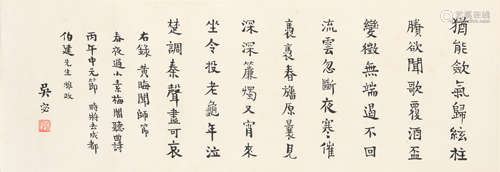 猶能斂氣歸絃柱
賸欲聞歌覆酒盃
變徵無端過不回
流雲忽斷夜寒催
裊裊春旛原曩見
深深簾燭又宵來
坐令投老龜年泣
楚調秦聲盡可哀
右錄黃晦聞師節
春夜過小幸梅閣聽曲詩
丙年中元節 時將去成都
伯建先生雅政
吳宓